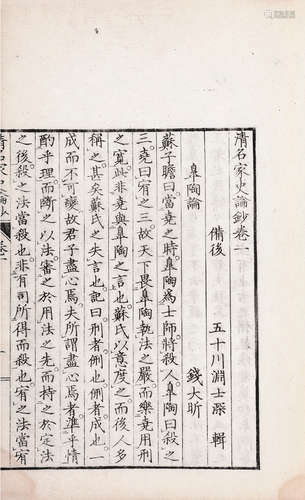 清名家史論鈔卷一
備後 五十川淵士深 輯
皐陶論 錢大昕
蘇子瞻曰當堯之時皐陶為士師將殺人皐陶曰殺之
三堯曰宥之三故天下畏皐陶執法之嚴而樂堯用刑
之寬此非堯與皐陶之言也蘇氏以意度之而後人多
稱之甚矣蘇氏之失言也記曰刑者侀也侀者成也一
成而不可變故君子盡心焉夫所謂盡心焉者準乎情
酌乎理而斷之以法審之於用法之先而持之於定法
之後殺之法當殺也非有司所得而殺也宥之法當宥
清名家史論鈔 卷一